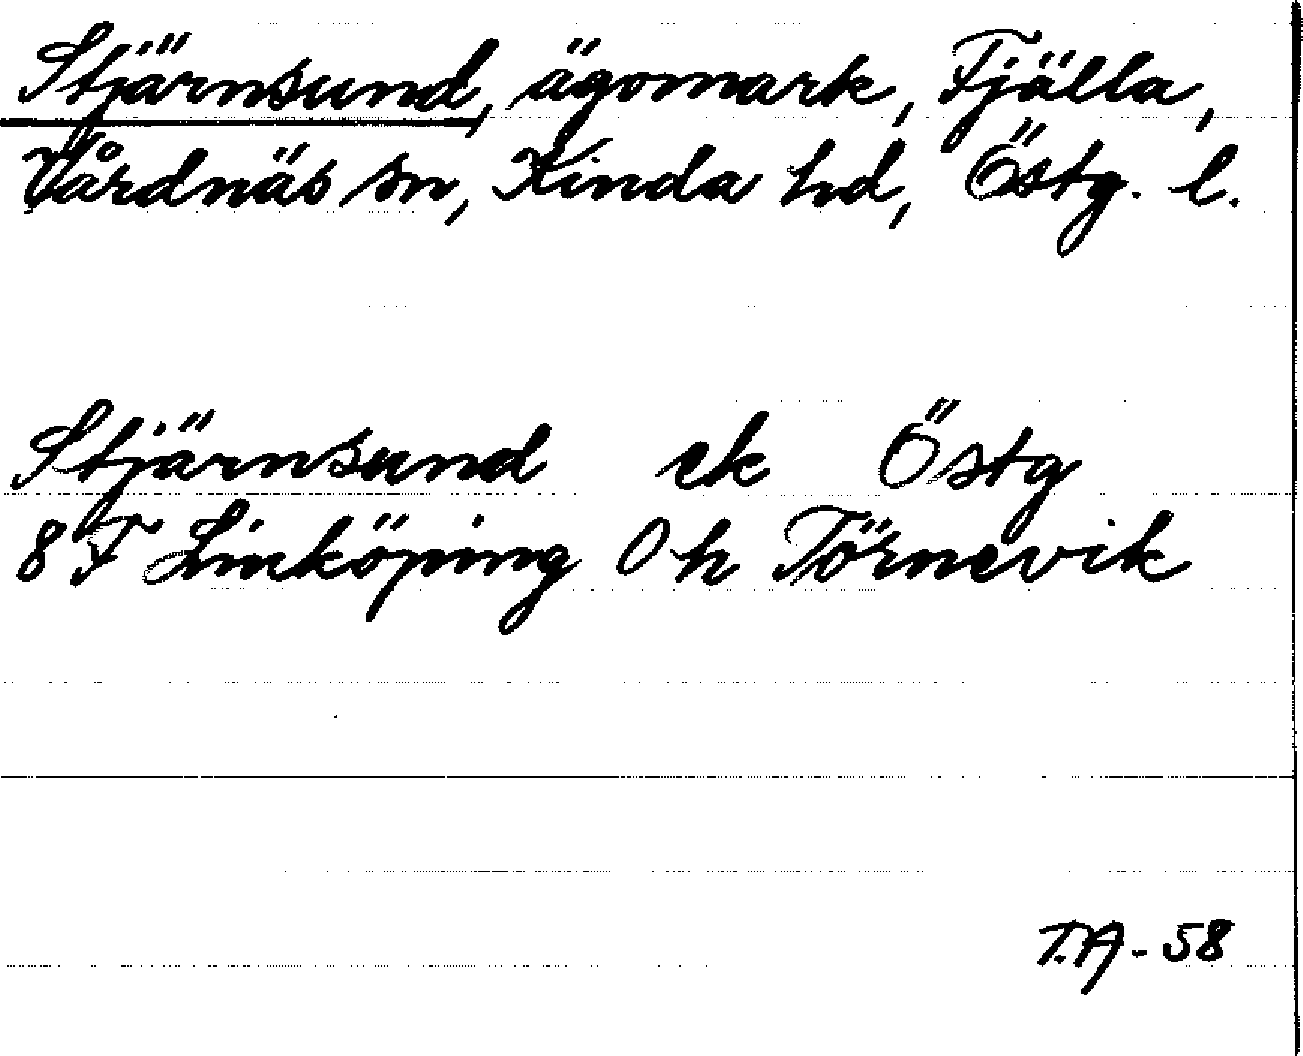 Stjärnsund, ägomark, Fjälla,
Vårdnäs sn, Kinda hd, Östg. l.
Stjärnsund ek Östg
8 F Linköping 0 h Törnevik
T.A - 58